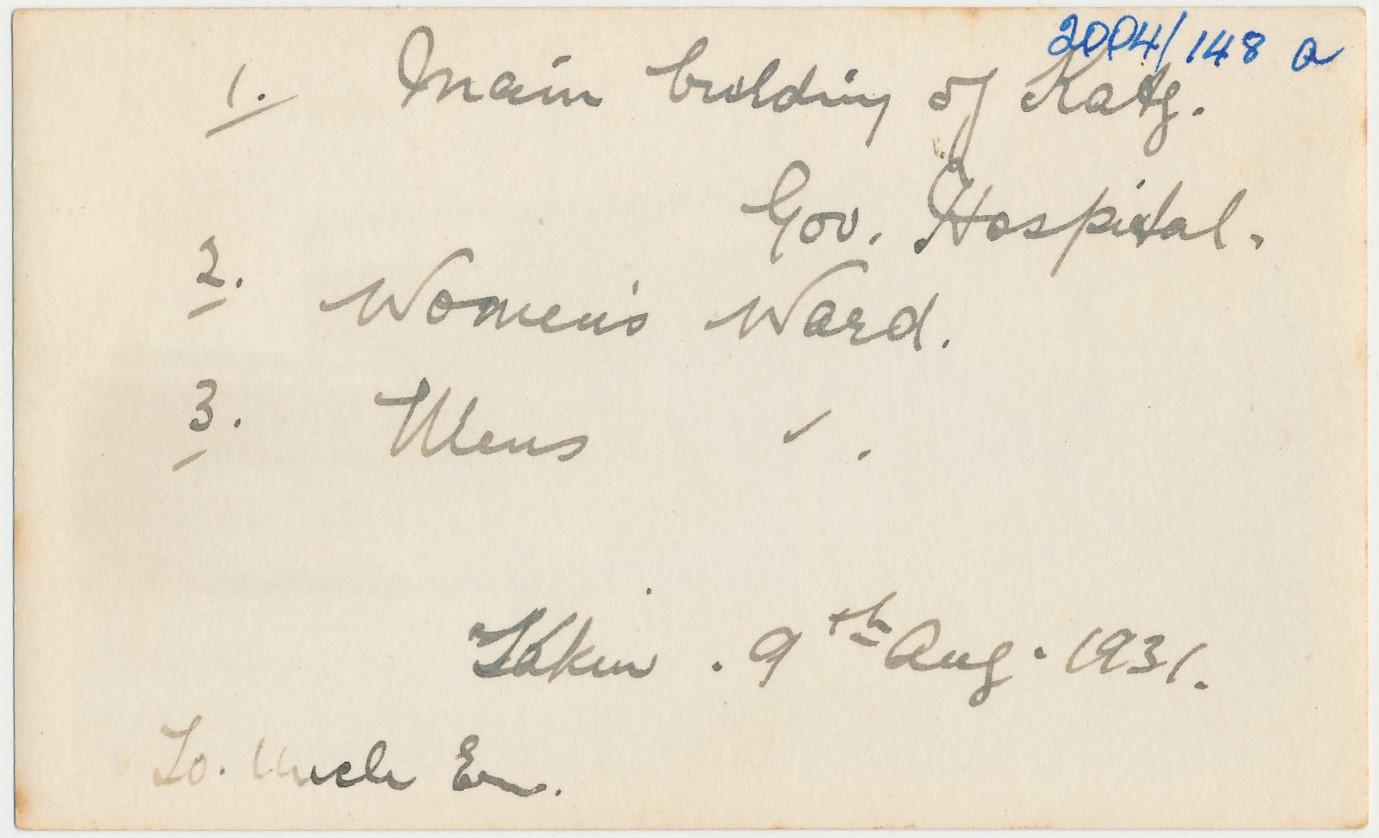 2004/148 a
1. Main building of Katg.
Gov. Hospital.
2. Women's Ward.
3. Mens " .
Takin . 9th Aug. 1931.
To. Uncle Em.